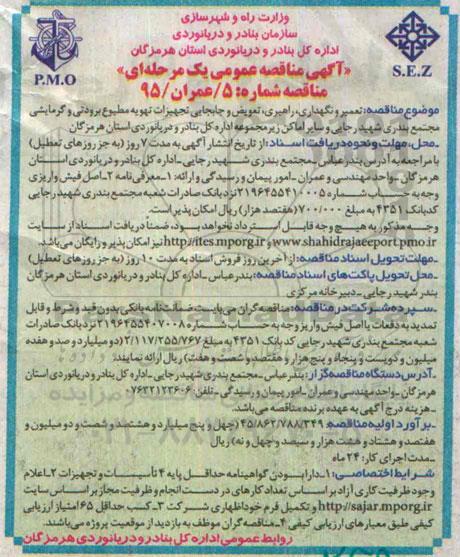 وزارت راه و شهرسازی
سازمان بنادر و دریانوردی
اداره کل بنادر و دریانوردی استان هرمزگان
P.M.O
S.E.Z
«آگهی مناقصه عمومی یک مرحله‌ای»
مناقصه شماره: ۵/عمران/۹۵
موضوع مناقصه: تعمیر و نگهداری، راهبری، تعویض و جابجایی تجهیزات تهویه مطبوع برودتی و گرمایشی
مجتمع بندری شهید رجایی و سایر اماکن زیرمجموعه اداره کل بنادر و دریانوردی استان هرمزگان
ـ محل، مهلت و نحوه دریافت اسناد: از تاریخ انتشار آگهی به مدت ۷ روز (به جز روزهای تعطیل)
با مراجعه به آدرس بندرعباس ـ مجتمع بندری شهید رجایی ـ اداره کل بنادر و دریانوردی استان
هرمزگان ـ واحد مهندسی و عمران ـ امور پیمان و رسیدگی و ارائه: ۱ـ معرفی نامه ۲ـ اصل فیش واریزی
وجه به حساب شماره ۲۱۹۶۴۵۵۴۱۰۰۵ نزد بانک صادرات شعبه مجتمع بندری شهید رجایی
کدبانک ۴۳۵۱ به مبلغ ۷۰۰/۰۰۰ (هفتصد هزار) ریال امکان پذیر است.
وجه مذکور به هیچ وجه قابل استرداد نخواهد بود، ضمناً دریافت اسناد از سایت
www.shahidrajaeeport.pmo.ir و http://iets.mporg.ir نیز امکان پذیر و رایگان می‌باشد.
ـ مهلت تحویل اسناد مناقصه: از آخرین روز فروش اسناد به مدت ۱۰ روز (به جز روزهای تعطیل)
ـ محل تحویل پاکت‌های اسناد مناقصه: بندرعباس ـ اداره کل بنادر و دریانوردی استان هرمزگان
بندر شهید رجایی ـ دبیرخانه مرکزی
ـ سپرده شرکت در مناقصه: مناقصه گران می‌بایست ضمانت‌نامه بانکی بدون قید و شرط و قابل
تمدید به دفعات یا اصل فیش واریز وجه به حساب شماره ۲۱۹۶۴۵۵۴۰۷۰۰۸ نزد بانک صادرات
شعبه مجتمع بندری شهید رجایی کد بانک ۴۳۵۱ به مبلغ ۲/۱۱۷/۲۵۵/۷۶۷ (دو میلیارد و صد و هفده
میلیون و دویست و پنجاه و پنج هزار و هفتصد و شصت و هفت) ریال ارائه نمایند.
ـ آدرس دستگاه مناقصه گزار: بندرعباس ـ مجتمع بندری شهید رجایی ـ اداره کل بنادر و دریانوردی استان
هرمزگان ـ واحد مهندسی و عمران ـ امور پیمان و رسیدگی ـ تلفن: ۰۷۶۳۲۱۲۳۶۰۶
ـ هزینه درج آگهی به عهده برنده مناقصه می‌باشد.
ـ برآورد اولیه مناقصه: ۴۵/۸۶۲/۷۸۸/۳۴۹ (چهل و پنج میلیارد و هشتصد و شصت و دو میلیون و
هفتصد و هشتاد و هشت هزار و سیصد و چهل و نه) ریال
ـ مدت اجرای کار: ۲۴ ماه
شرایط اختصاصی: ۱ـ دارا بودن گواهینامه حداقل پایه ۴ تأسیسات و تجهیزات ۲ـ اعلام
وجود ظرفیت کاری آزاد بر اساس تعداد کارهای در دست انجام و ظرفیت مجاز بر اساس سایت
http://sajar.mporg.ir و تکمیل فرم خوداظهاری شرکت ۳ـ کسب حداقل ۶۵ امتیاز ارزیابی
کیفی طبق معیارهای ارزیابی کیفی ۴ـ مناقصه گران موظف به بازدید از موقعیت پروژه می‌باشند.
روابط عمومی اداره کل بنادر و دریانوردی هرمزگان